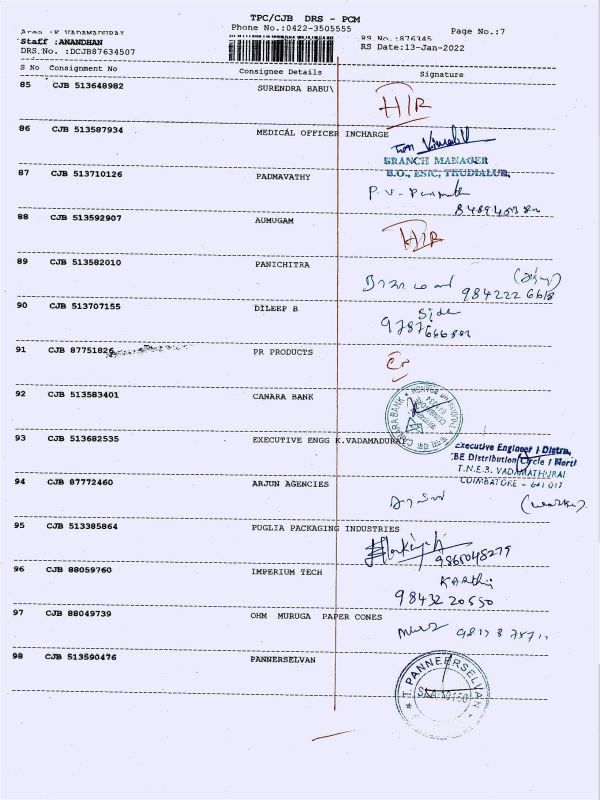 TPC/CJB DRS - PCM
Phone No.:0422-3505555
Page No.:7
Staff :ANANDHAN
RS No.:876345
DRS.No. :DCJB87634507
RS Date:13-Jan-2022
S No Consignment No Consignee Details Signature
85 CJB 513648982 SURENDRA BABU\
86 CJB 513587934 MEDICAL OFFICER INCHARGE
BRANCH MANAGER
B.O., ESIC, THUDIALUR,
87 CJB 513710126 PADMAVATHY
88 CJB 513592907 AUMUGAM
89 CJB 513582010 PANICHITRA
984222 6618
90 CJB 513707155 DILEEP B
Side
91 CJB 87751826 PR PRODUCTS
92 CJB 513583401 CANARA BANK
CANARA BANK
93 CJB 513682535 EXECUTIVE ENGG K.VADAMADURAI
Executive Engineer / Distrn,
CBE Distribution Circle / North
T.N.E.B. VADAMATHURAI
COIMBATORE - 641 017
94 CJB 87772460 ARJUN AGENCIES
95 CJB 513385864 PUGLIA PACKAGING INDUSTRIES
9865048279
96 CJB 88059760 IMPERIUM TECH
Karthi
9843220550
97 CJB 88049739 OHM MURUGA PAPER CONES
98 CJB 513590476 PANNERSELVAN
T. PANNEERSELVAN